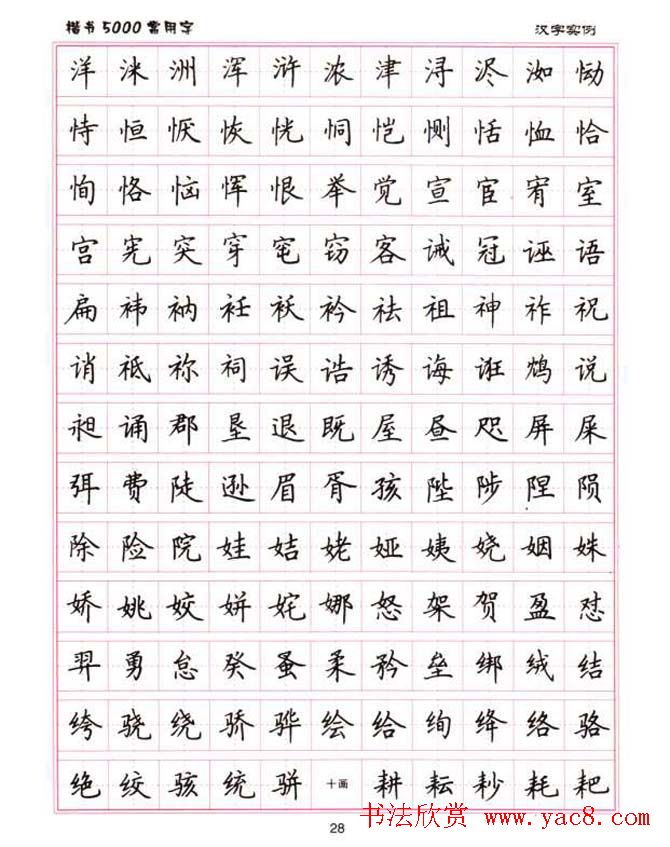 楷书5000常用字 汉字实例
洋 洣 洲 浑 浒 浓 津 浔 浕 洳 恸
恃 恒 恹 恢 恍 恫 恺 恻 恬 恤 恰
恂 恪 恼 恽 恨 举 觉 宣 宦 宥 室
宫 宪 突 穿 窀 窃 客 诫 冠 诬 语
扁 袆 衲 衽 袄 衿 祛 祖 神 祚 祝
诮 祗 祢 祠 误 诰 诱 诲 诳 鸩 说
昶 诵 郡 垦 退 既 屋 昼 咫 屏 屎
弭 费 陡 逊 眉 胥 孩 陛 陟 陧 陨
除 险 院 娃 姞 姥 娅 姨 娆 姻 姝
娇 姚 姣 姘 姹 娜 怒 架 贺 盈 怼
羿 勇 怠 癸 蚤 柔 矜 垒 绑 绒 结
绔 骁 绕 骄 骅 绘 给 绚 绛 络 骆
绝 绞 骇 统 骈 十画 耕 耘 耖 耗 耙
书法欣赏 www.yac8.com
28